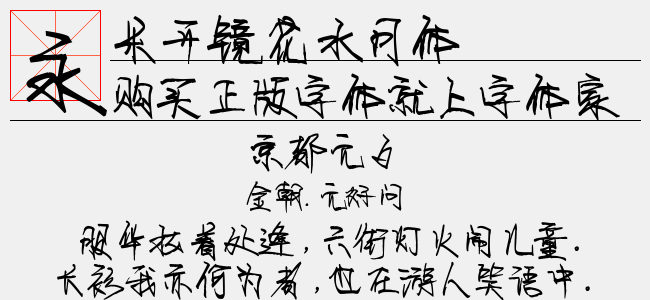 永
米开镜花水月体
购买正版字体就上字体家
京都元夕
金朝.元好问
服华妆着处逢,六街灯火闹儿童.
长衫我亦何为者,也在游人笑语中.